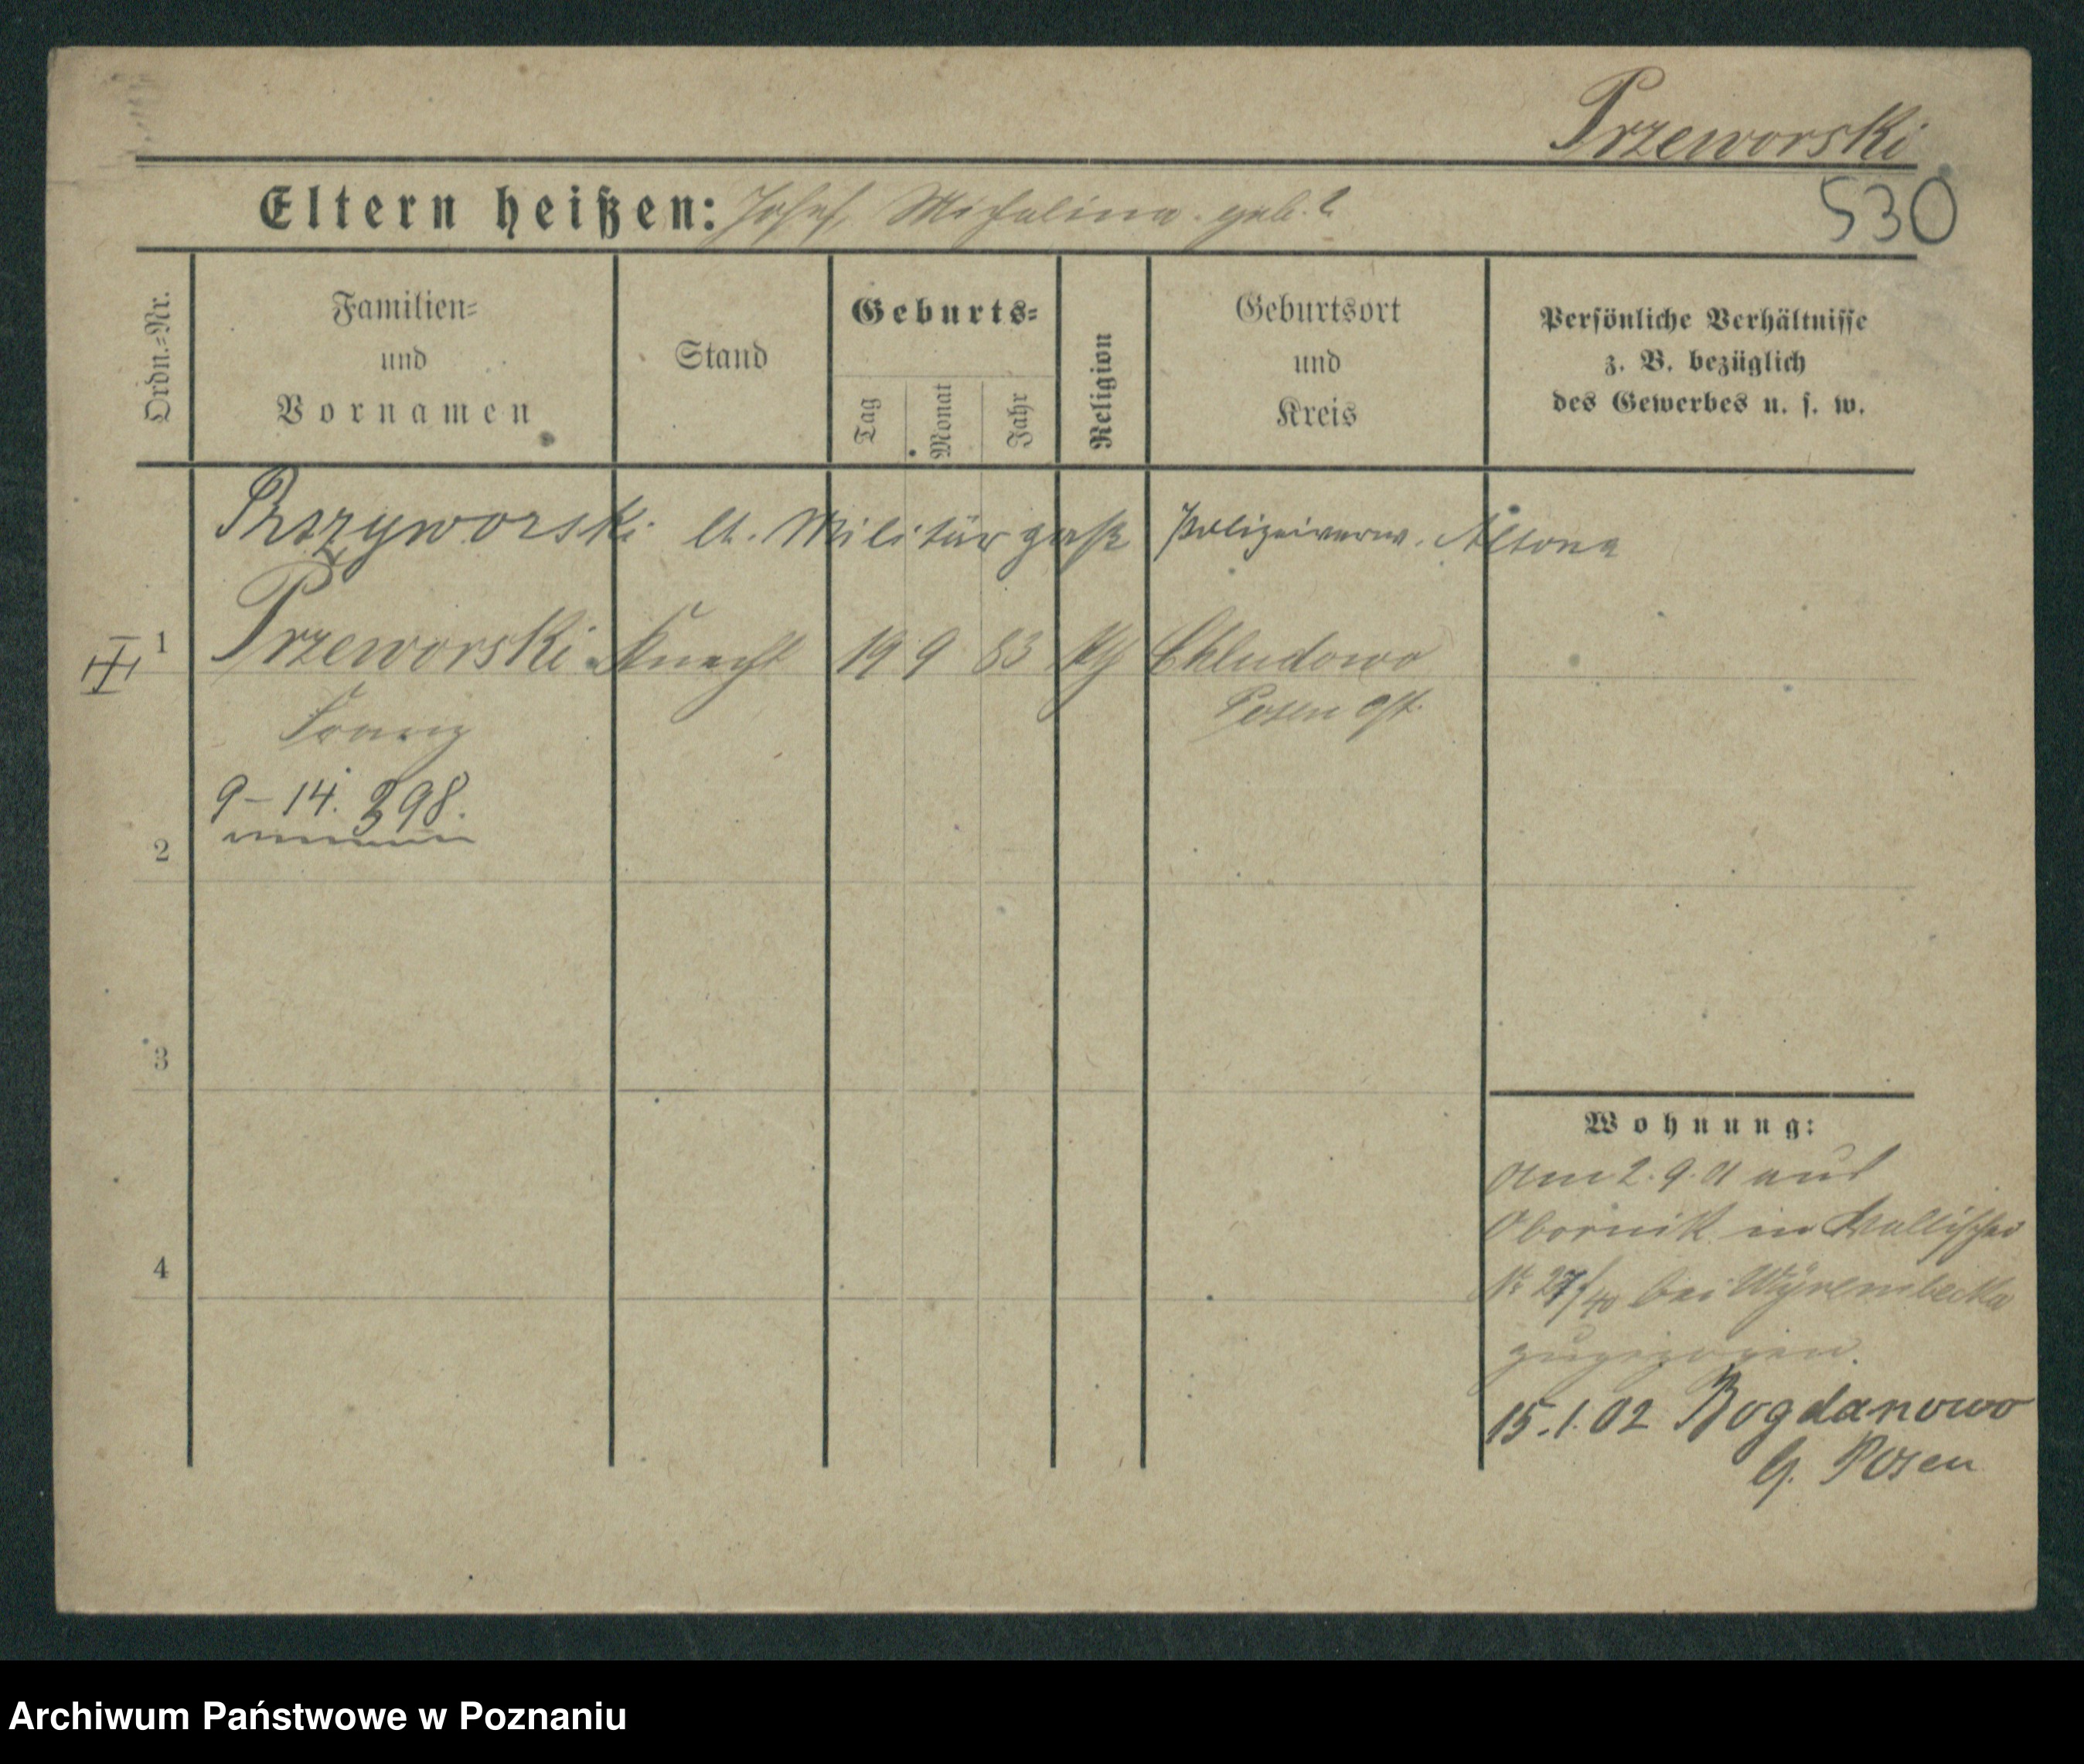 Przeworski
Eltern heißen: Josef, Michalina geb. ?
530
Ordn.=Nr.
Familien=
und
Vornamen
Stand
Geburts=
Tag
Monat
Jahr
Religion
Geburtsort
und
Kreis
Persönliche Verhältnisse
z. B. bezüglich
des Gewerbes u. s. w.
Przyworski lt. Militärpaß Polizeiverw. Altona
1 Przeworski Knecht 19 9 83 kth Chludowo
Franz Posen Ost.
9–14. 398.
2
3
4
Wohnung:
Am 2. 9. 01 aus
Obornik in Wallischei
Nr 27/40 bei Wyrembecka
zugezogen.
15.1.02 Bogdanowo
b. Posen
Archiwum Państwowe w Poznaniu